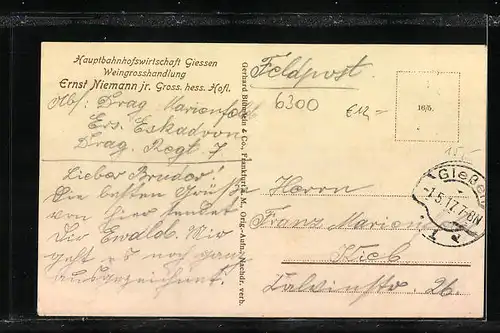 Hauptbahnhofswirtschaft Giessen
Weingrosshandlung
Ernst Niemann jr. Gross. hess. Hofl.
Abs: Drag. Marienfeld
Ers. Eskadron
Drag. Regt. 7
Lieber Bruder!
Die besten Grüße
von hier sendet
Dir Ewald. Mir
geht es noch ganz
ausgezeichnet.
Gerhard Blümlein & Co., Frankfurt a. M., Orig.-Aufn., Nachdr. verb.
Feldpost
6300
16/5.
Gießen
1.5.17. 7-8N
Herrn
Franz
26.